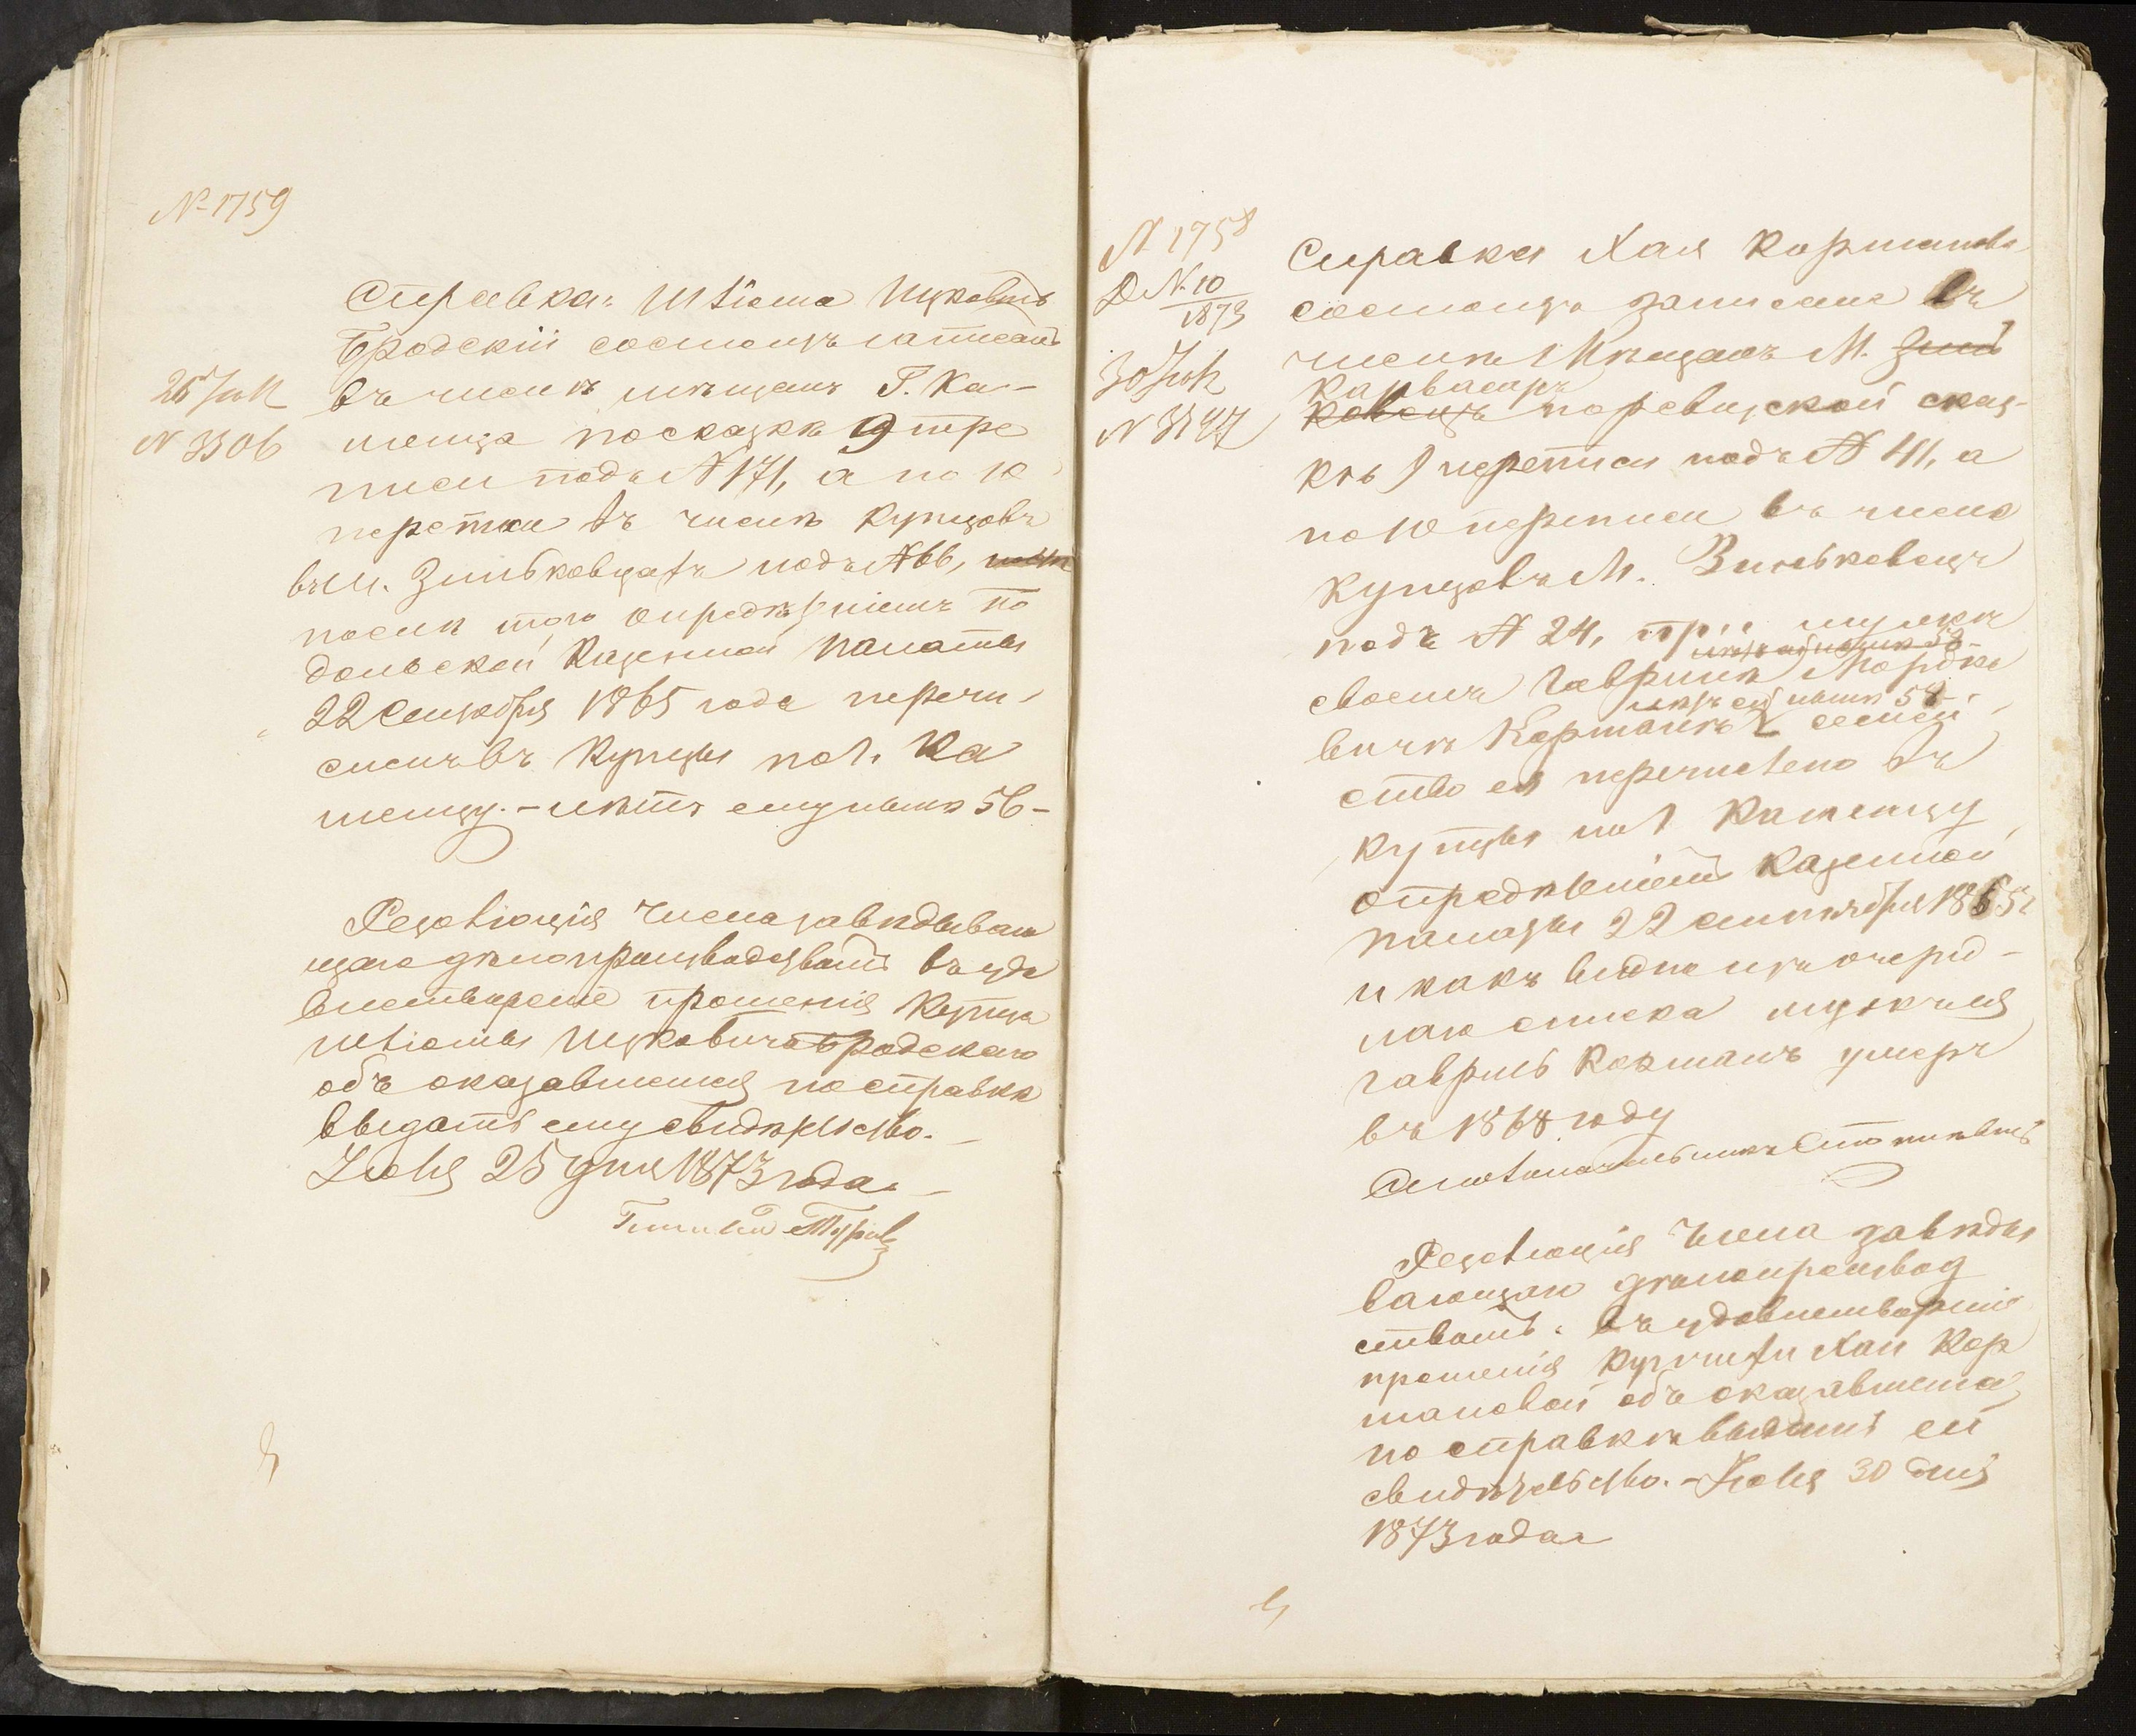 № 1759
Справка: Шліома Ицковичъ
Бродскій состоитъ записанъ
25 Іюн
въ числѣ мѣщанъ Г. Ка-
№ 3306
менца по сказкѣ 9 пере
писи подъ № 171, а по 10
переписи въ числѣ купцовъ
въ м. Зиньковцахъ подъ № 66,
послѣ того опредѣленіемъ По
дольской Казенной Палаты
22 Сентября 1865 года перечи-
сленъ въ купцы по г. Ка
менцу. - лѣтъ ему нынѣ 56 -
Резолюція Члена завѣдываю
щаго дѣлопроизводствомъ въ удо
влетвореніе прошенія Купца
Шліомы Ицковича Бродскаго
объ оказавшемся по справкѣ
выдать ему свидѣтельство. -
Іюня 25 дня 1873 года. -
№ 1758
Д № 10
1873
30 Іюн
№ 3347
Справка Хая Корманова
состоитъ записана въ
числѣ Мѣщанъ М. Зинь
Карвасаръ
ковецъ по ревизской сказ-
кѣ 9 переписи подъ № 41, а
по 10 переписи въ числѣ
купцовъ М. Зиньковецъ
подъ № 24, при мужѣ
лѣтъ ей нынѣ 58 -
своемъ Гаврилѣ Мордко
лѣтъ ей нынѣ 58 -
вичѣ Корманѣ семей
ство ея перечислено въ
купцы по г Каменцу
опредѣленіемъ Казенной
палаты 22 сентября 1865 г
и какъ видно изъ очеред-
наго списка мужъ ея
Гаврилъ Корманъ умеръ
въ 1868 году
Столоначальникъ
Резолюція Члена завѣды
вающаго дѣлопроизвод
ствомъ: въ удовлетвореніе
прошенія купчихи Хаи Кор
мановой объ оказавшемся
по справкѣ выдать ей
свидѣтельство. - Іюня 30 дня
1873 года